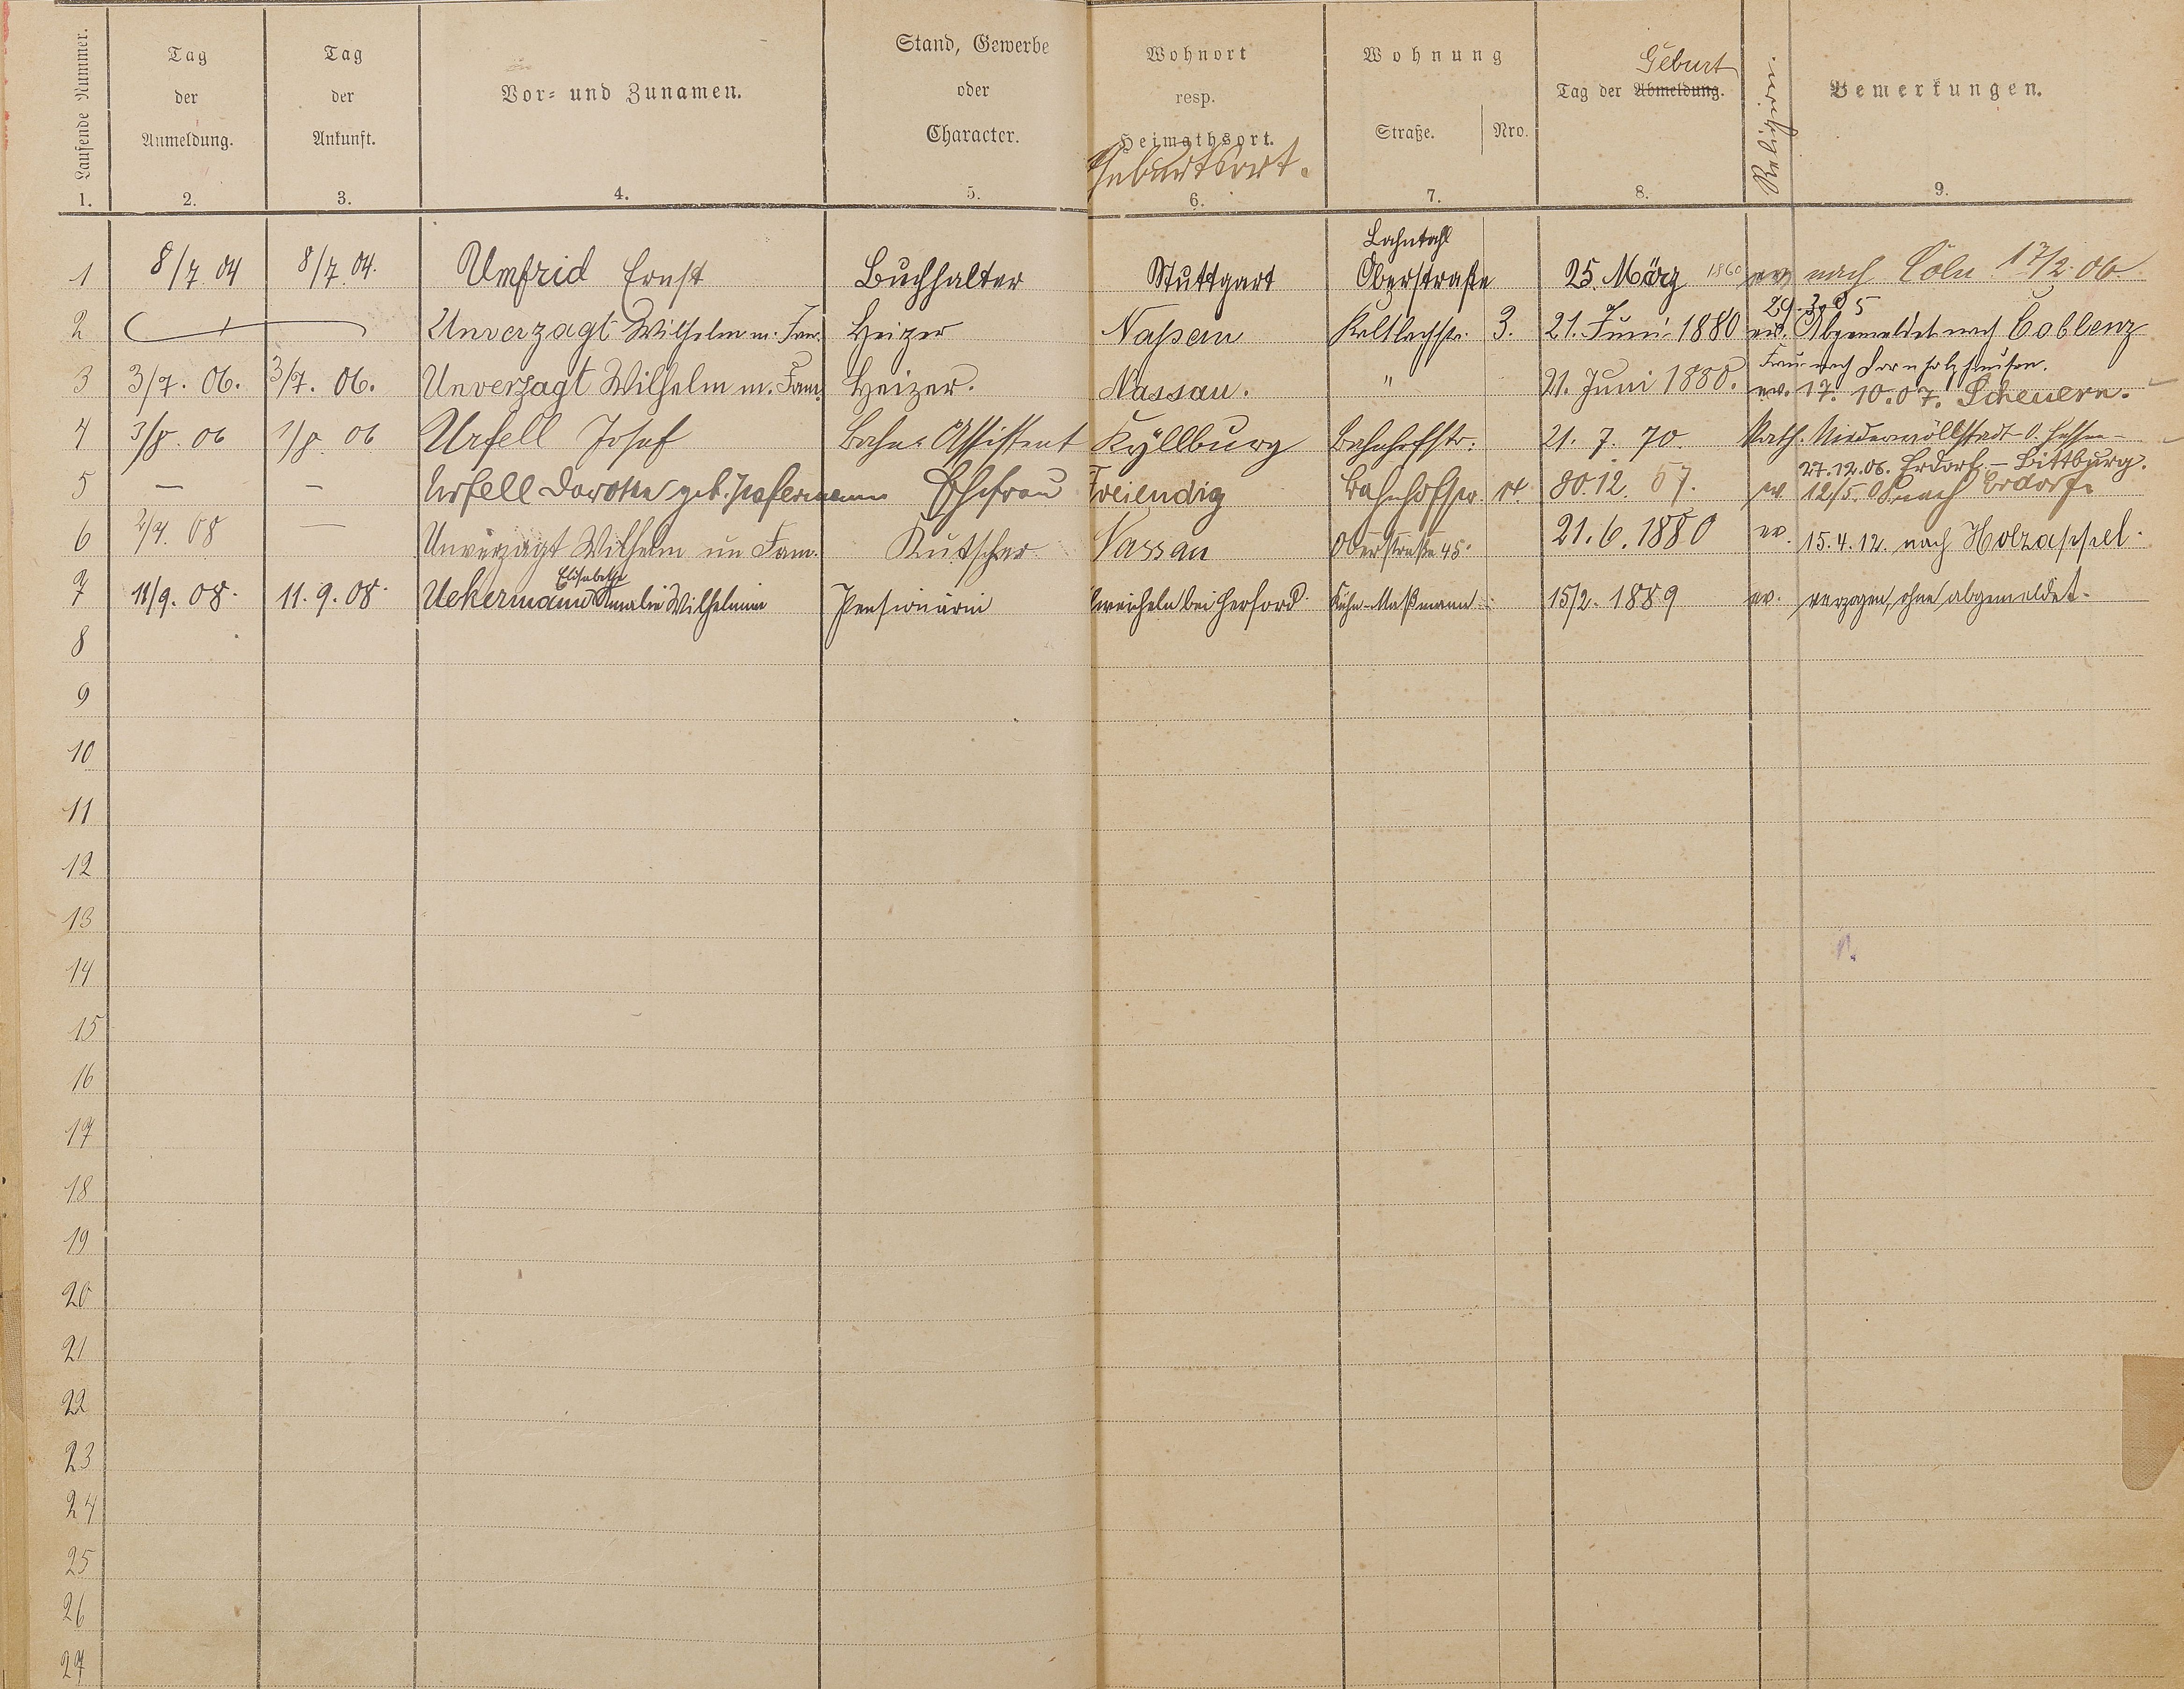 Laufende Nummer.
Tag der Anmeldung.
Tag der Ankunft.
Vor- und Zunamen.
Stand, Gewerbe oder Character.
Wohnort resp. Heimathsort.
Geburtsort.
Wohnung
Straße. Nro.
Geburt
Tag der Abmeldung.
Religion.
Bemerkungen.
1. 2. 3. 4. 5. 6. 7. 8. 9.
Lahntahl
1 8/7 04 8/7. 04. Umfrid Ernst Buchhalter Stuttgart Oberstraße 25. März 1860 ev nach Cöln 17/2. 06.
2 Unverzagt Wilhelm m. Fam. Heizer Nassau Kaltbachstr. 3. 21. Juni 1880 ev. Abgemeldet nach Coblenz
Frau nach Dornholzhausen.
3 3/7. 06. 3/7. 06. Unverzagt Wilhelm m. Fam. Heizer. Nassau. " 21. Juni 1880. ev. 17. 10. 07. Scheuern.
4 3/8. 06 1/8. 06 Urfell Josef Bahn-Assistent Kyllburg Bahnhofstr. 21. 7. 70. Kath. Niederwöllstadt O. Hessen-
27.12.06. Erdorf - Bittburg.
5 — — Urfell Dorothea geb. Ehefrau Freiendiez Bahnhofstr. 30.12. 67. ev. 12/5. nach Erdorf.
6 2/4. 08 — Unverzagt Wilhelm un Fam. Kutscher Nassau Oberstraße 45. 21. 6. 1880 ev. 15. 4. 12. nach Holzappel.
Elisabethe
7 11/9. 08. 11. 9. 08. Uekermann Amalie Wilhelmine Pensionärin bei Herford Kühn-Maßmann 15/2. 1889 ev. verzogen, ohne abgemeldet.
8
9
10
11
12
13
14
15
16
17
18
19
20
21
22
23
24
25
26
27